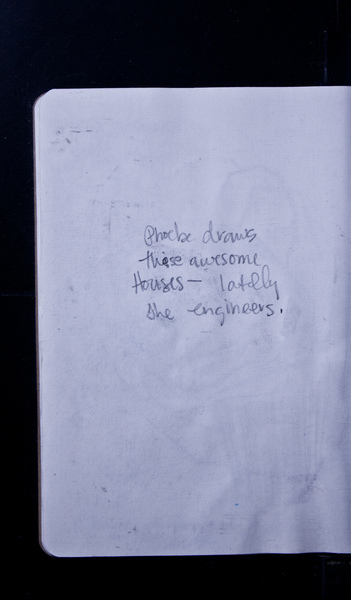 Phoebe draws
these awesome
Houses— lately
she engineers.